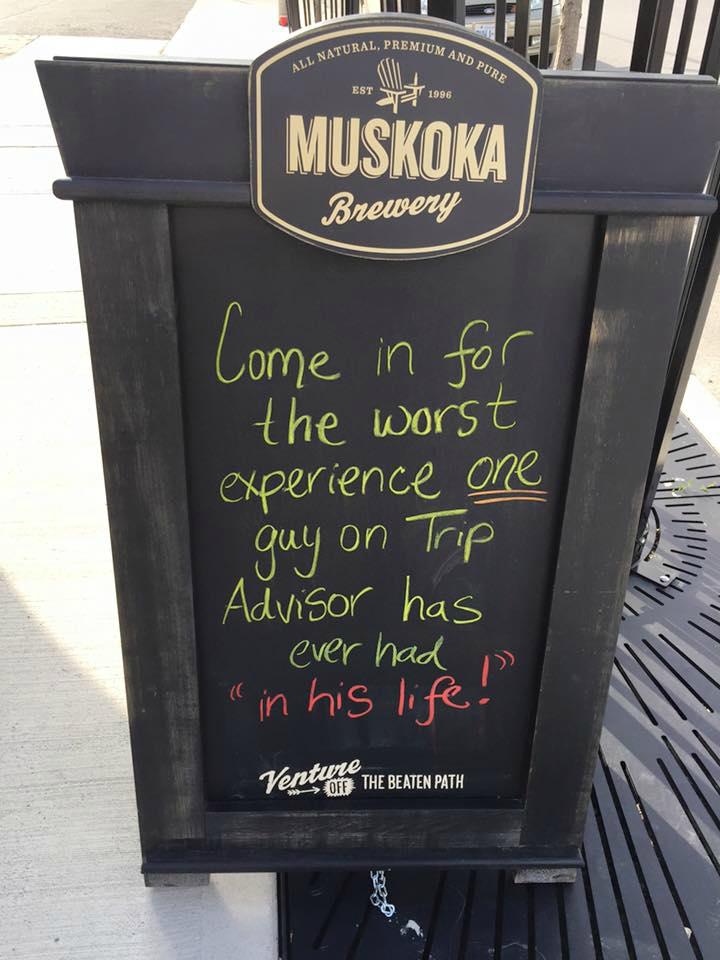 ALL NATURAL, PREMIUM AND PURE
EST 1996
MUSKOKA
Brewery
Come in for
the worst
experience one
guy on Trip
Advisor has
ever had
"in his life!"
Venture
OFF THE BEATEN PATH